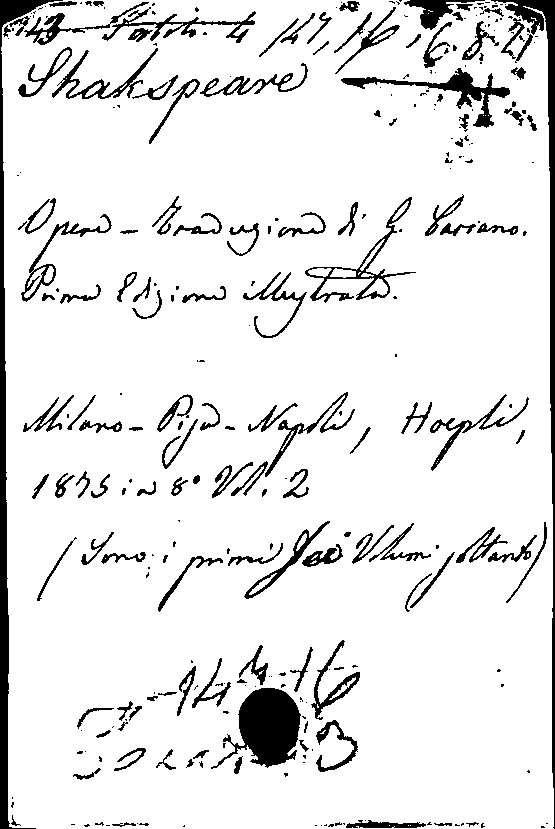 143 147, 16, 6.8.21
Shakspeare
Opere - Traduzione di G. Carcano.
Prima Edizione illustrata.
Milano - Pisa - Napoli, Hoepli,
1875 in 8° Vol. 2
(Sono i primi Volumi soltanto)
16